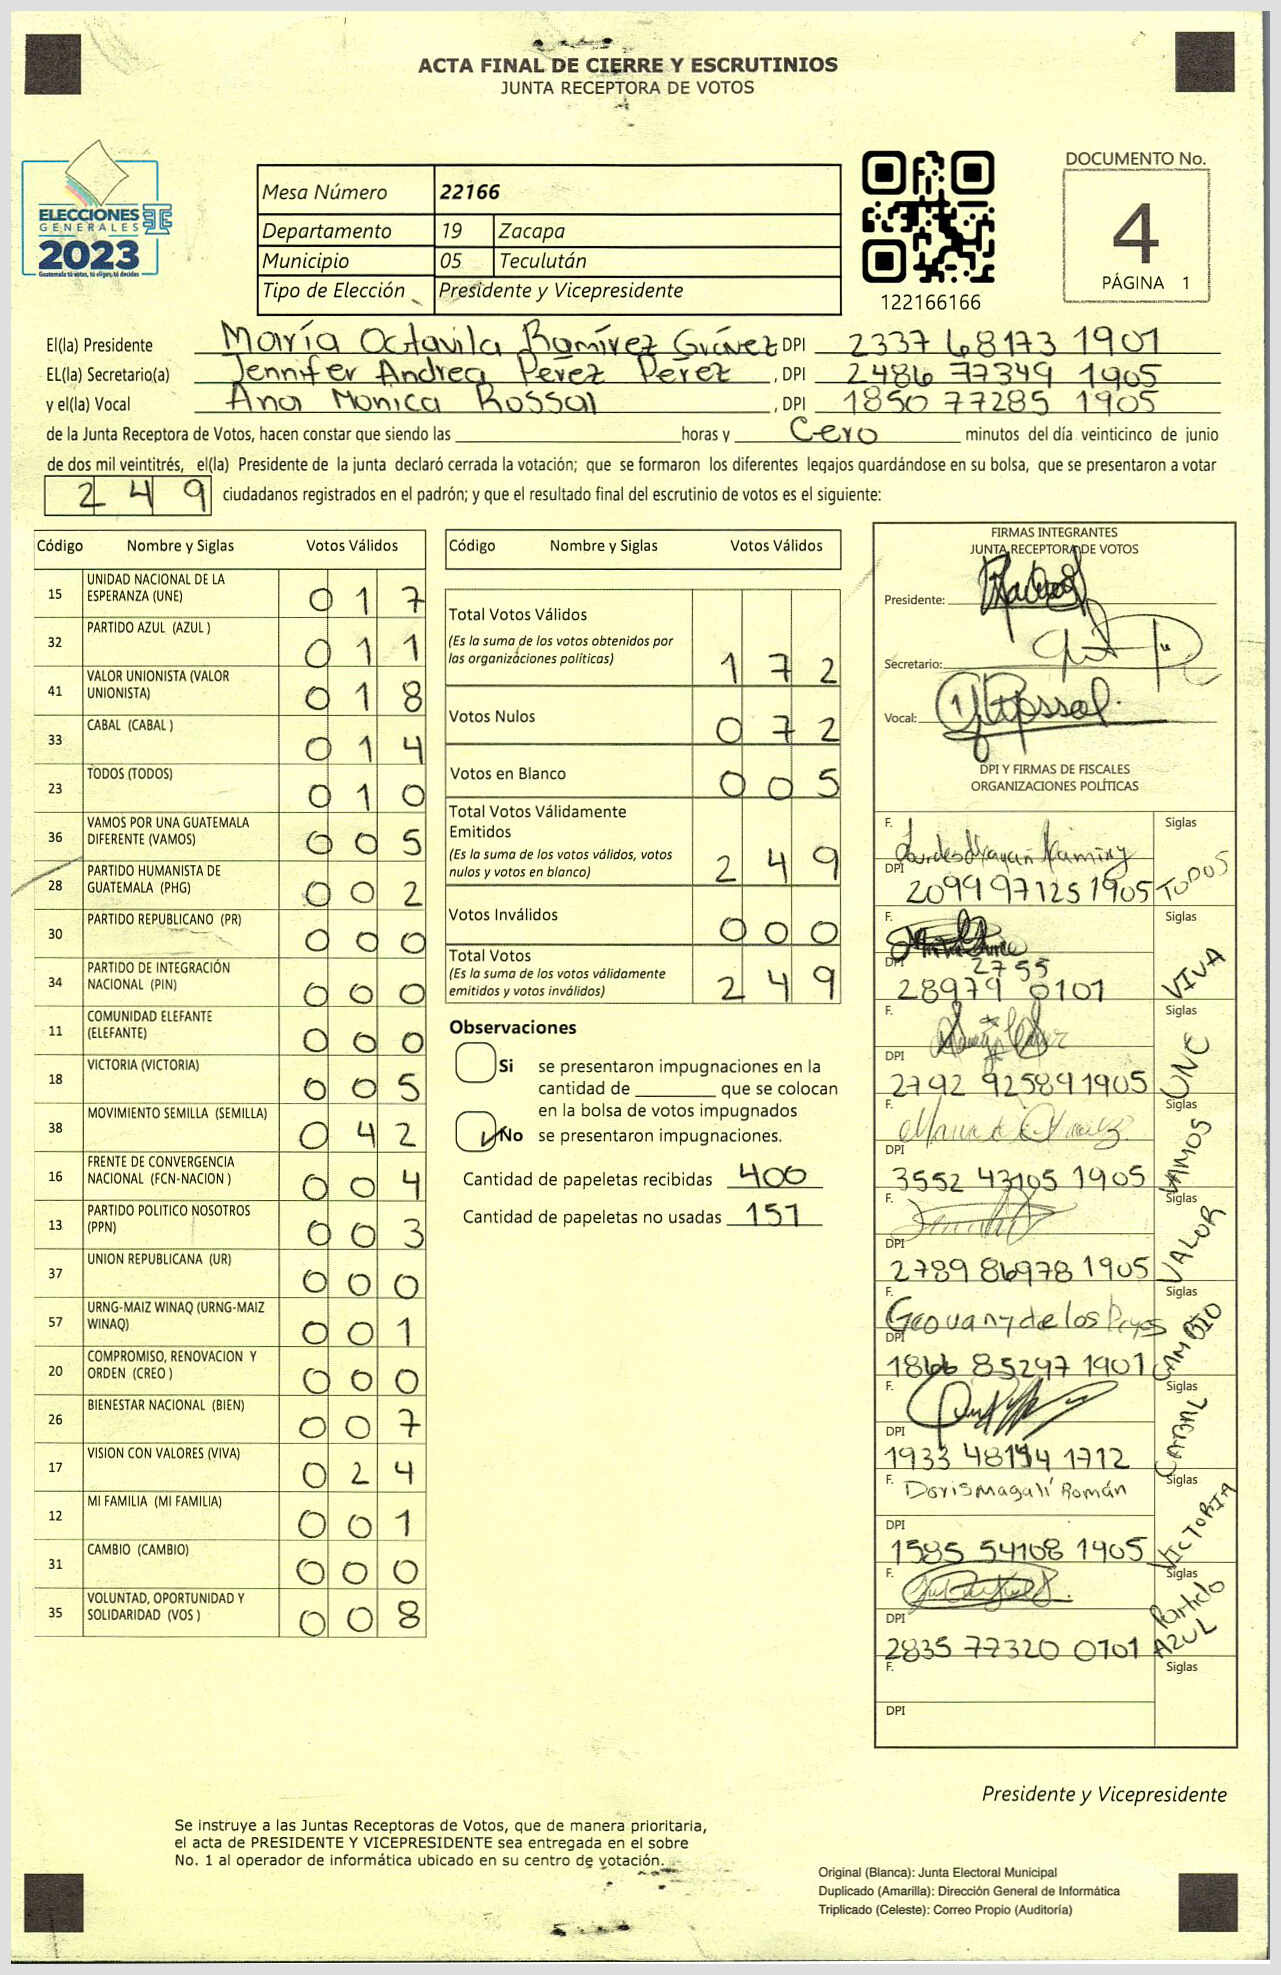 ACTA FINAL DE CIERRE Y ESCRUTINIOS
JUNTA RECEPTORA DE VOTOS
ELECCIONES
GENERALES
2023
Guatemala tú votas, tú eliges, tú decides
Mesa Número 22166
Departamento 19 Zacapa
Municipio 05 Teculután
Tipo de Elección Presidente y Vicepresidente
122166166
DOCUMENTO No.
4
PÁGINA 1
El(la) Presidente María Octavila Ramírez Grávez DPI 2337 68173 1901
EL(la) Secretario(a) Jennifer Andrea Pérez Pérez , DPI 2486 77349 1905
y el(la) Vocal Ana Monica Rossal , DPI 1850 77285 1905
de la Junta Receptora de Votos, hacen constar que siendo las horas y Cero minutos del día veinticinco de junio
de dos mil veintitrés, el(la) Presidente de la junta declaró cerrada la votación; que se formaron los diferentes legajos guardándose en su bolsa, que se presentaron a votar
249 ciudadanos registrados en el padrón; y que el resultado final del escrutinio de votos es el siguiente:
Código Nombre y Siglas Votos Válidos
15 UNIDAD NACIONAL DE LA ESPERANZA (UNE) 017
32 PARTIDO AZUL (AZUL ) 011
41 VALOR UNIONISTA (VALOR UNIONISTA) 018
33 CABAL (CABAL ) 014
23 TODOS (TODOS) 010
36 VAMOS POR UNA GUATEMALA DIFERENTE (VAMOS) 005
28 PARTIDO HUMANISTA DE GUATEMALA (PHG) 002
30 PARTIDO REPUBLICANO (PR) 000
34 PARTIDO DE INTEGRACIÓN NACIONAL (PIN) 000
11 COMUNIDAD ELEFANTE (ELEFANTE) 000
18 VICTORIA (VICTORIA) 005
38 MOVIMIENTO SEMILLA (SEMILLA) 042
16 FRENTE DE CONVERGENCIA NACIONAL (FCN-NACION ) 004
13 PARTIDO POLITICO NOSOTROS (PPN) 003
37 UNION REPUBLICANA (UR) 000
57 URNG-MAIZ WINAQ (URNG-MAIZ WINAQ) 001
20 COMPROMISO, RENOVACION Y ORDEN (CREO ) 000
26 BIENESTAR NACIONAL (BIEN) 007
17 VISION CON VALORES (VIVA) 024
12 MI FAMILIA (MI FAMILIA) 001
31 CAMBIO (CAMBIO) 000
35 VOLUNTAD, OPORTUNIDAD Y SOLIDARIDAD (VOS ) 008
Código Nombre y Siglas Votos Válidos
Total Votos Válidos
(Es la suma de los votos obtenidos por
las organizaciones políticas) 172
Votos Nulos 072
Votos en Blanco 005
Total Votos Válidamente
Emitidos
(Es la suma de los votos válidos, votos
nulos y votos en blanco) 249
Votos Inválidos 000
Total Votos
(Es la suma de los votos válidamente
emitidos y votos inválidos) 249
Observaciones
Si se presentaron impugnaciones en la
cantidad de que se colocan
en la bolsa de votos impugnados
No se presentaron impugnaciones.
Cantidad de papeletas recibidas 400
Cantidad de papeletas no usadas 151
FIRMAS INTEGRANTES
JUNTA RECEPTORA DE VOTOS
Presidente:
Secretario:
Vocal:
DPI Y FIRMAS DE FISCALES
ORGANIZACIONES POLÍTICAS
F. Siglas
DPI 2099 97125 1905 TODOS
F. Siglas
DPI 2755
28979 0101 VIVA
F. Siglas
DPI
2792 92589 1905 UNE
F. Siglas
DPI
3552 43105 1905 VAMOS
F. Siglas
DPI
2789 86978 1905 VALOR
F. Geovany de los Reyes Siglas
DPI
1866 85297 1901 CAMBIO
F. Siglas
DPI
1933 48194 1712 CABAL
F. Doris Magalí Román Siglas
DPI
1585 54108 1905 VICTORIA
F. Siglas
DPI
2835 77320 0101 Partido AZUL
F. Siglas
DPI
Presidente y Vicepresidente
Se instruye a las Juntas Receptoras de Votos, que de manera prioritaria,
el acta de PRESIDENTE Y VICEPRESIDENTE sea entregada en el sobre
No. 1 al operador de informática ubicado en su centro de votación.
Original (Blanca): Junta Electoral Municipal
Duplicado (Amarilla): Dirección General de Informática
Triplicado (Celeste): Correo Propio (Auditoría)